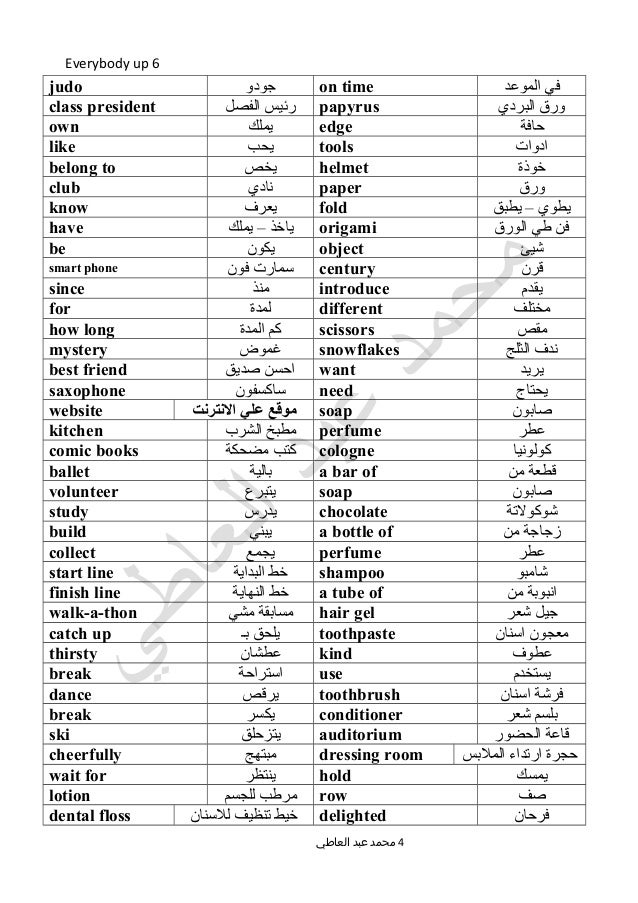 Everybody up 6
judo جودو on time في الموعد
class president رئيس الفصل papyrus ورق البردي
own يملك edge حافة
like يحب tools ادوات
belong to يخص helmet خوذة
club نادي paper ورق
know يعرف fold يطوي – يطبق
have ياخذ – يملك origami فن طي الورق
be يكون object شيئ
smart phone سمارت فون century قرن
since منذ introduce يقدم
for لمدة different مختلف
how long كم المدة scissors مقص
mystery غموض snowflakes ندف الثلج
best friend احسن صديق want يريد
saxophone ساكسفون need يحتاج
website موقع علي الانترنت soap صابون
kitchen مطبخ الشرب perfume عطر
comic books كتب مضحكة cologne كولونيا
ballet بالية a bar of قطعة من
volunteer يتبرع soap صابون
study يدرس chocolate شوكولاتة
build يبني a bottle of زجاجة من
collect يجمع perfume عطر
start line خط البداية shampoo شامبو
finish line خط النهاية a tube of انبوبة من
walk-a-thon مسابقة مشي hair gel جيل شعر
catch up يلحق بـ toothpaste معجون اسنان
thirsty عطشان kind عطوف
break استراحة use يستخدم
dance يرقص toothbrush فرشة اسنان
break يكسر conditioner بلسم شعر
ski يتزحلق auditorium قاعة الحضور
cheerfully مبتهج dressing room حجرة ارتداء الملابس
wait for ينتظر hold يمسك
lotion مرطب للجسم row صف
dental floss خيط تنظيف للاسنان delighted فرحان
4 محمد عبد العاطي
محمد عبد العاطي